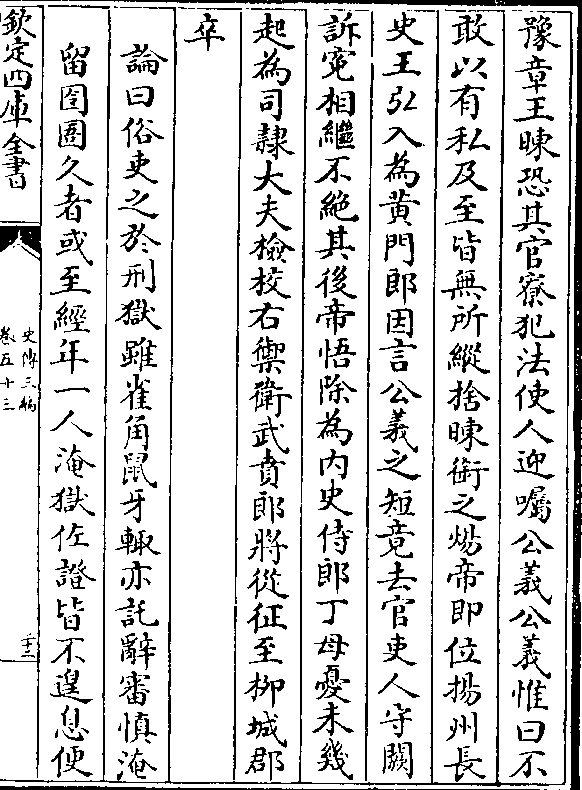 豫章王暕恐其官寮犯法使人迎囑公義公義惟曰不
敢以有私及至皆無所縱捨暕銜之煬帝即位揚州長
史王弘入為黄門郎因言公義之短竟去官吏人守闕
訴寃相繼不絶其後帝悟除為内史侍郎丁母憂未幾
起為司隷大夫檢校右禦衛武賁郎將從征至栁城郡
卒
論曰俗吏之於刑獄雖雀角鼠牙輙亦託辭審慎淹
留囹圄久者或至經年一人淹獄佐證皆不遑息便
欽定四庫全書
史傳三編
卷五十三